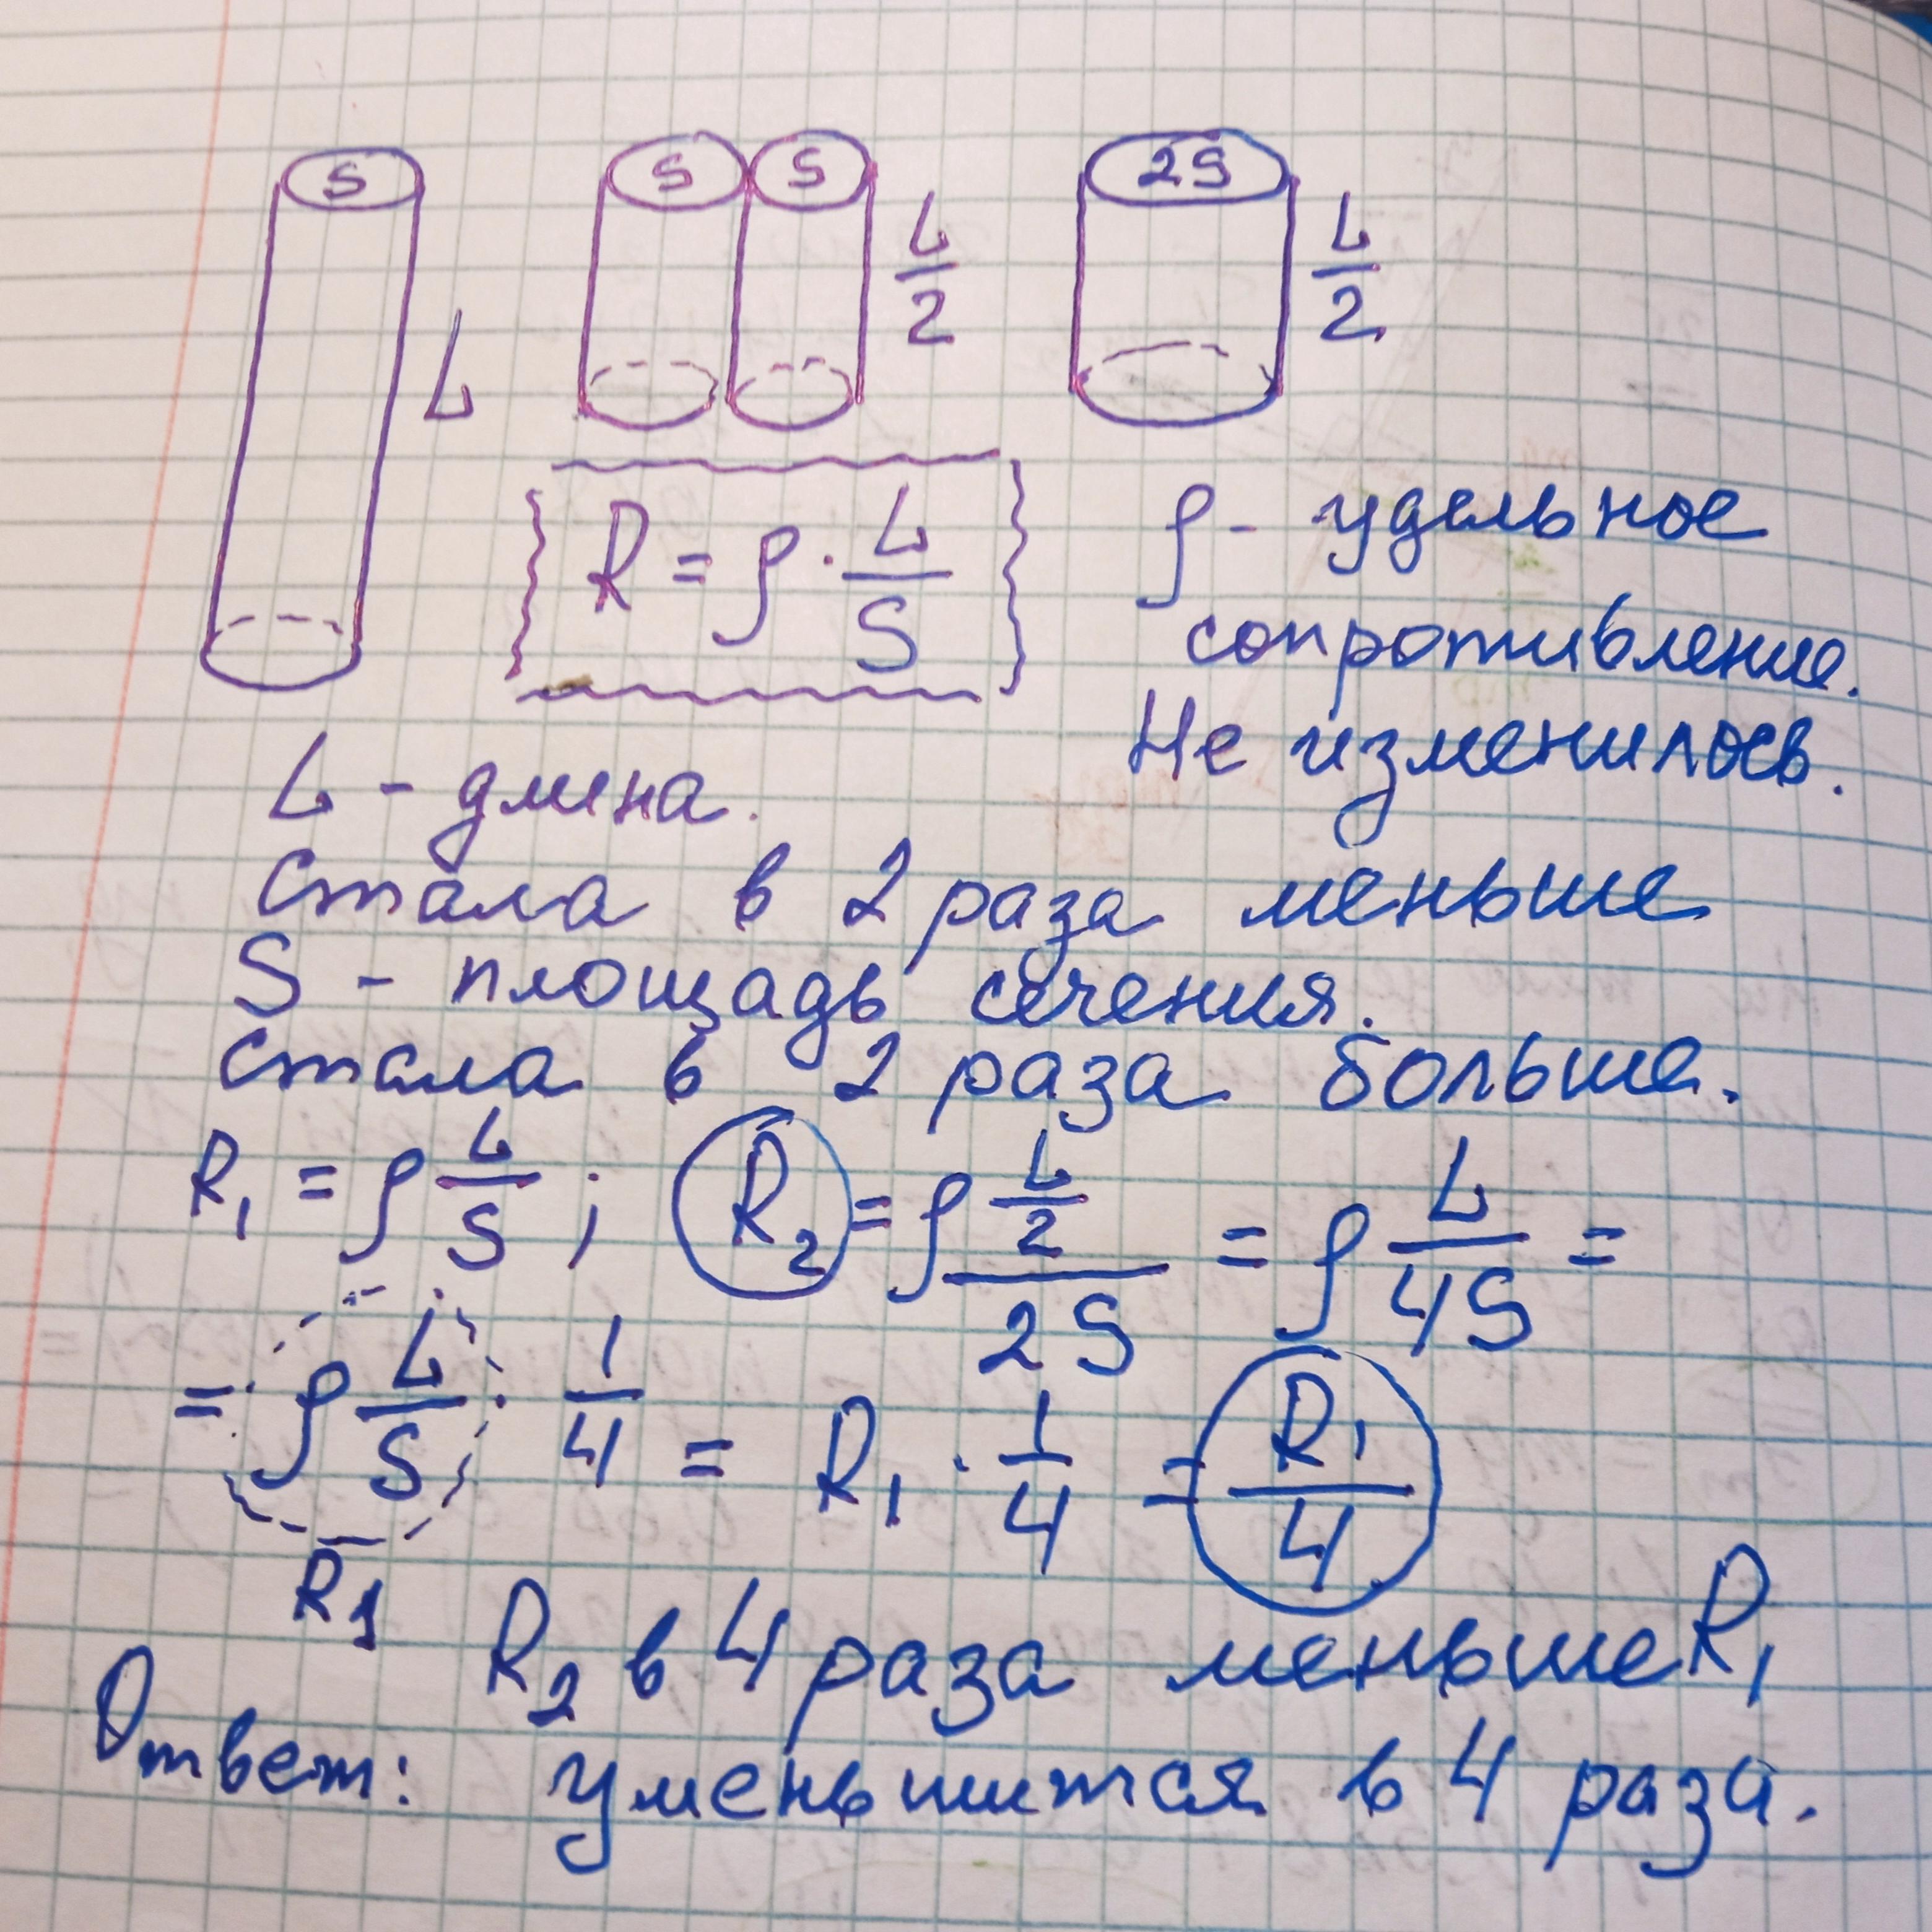 S S S 2S
L L/2 L/2
R = ρ · L/S
ρ - удельное
сопротивление.
Не изменилось.
L - длина.
Стала в 2 раза меньше
S - площадь сечения.
Стала в 2 раза больше.
R₁ = ρ L/S ; R₂ = ρ (L/2)/(2S) = ρ L/(4S) =
= ρ L/S · 1/4 = R₁ · 1/4 = R₁/4
R₁
R₂ в 4 раза меньше R₁
Ответ: уменьшится в 4 раза.